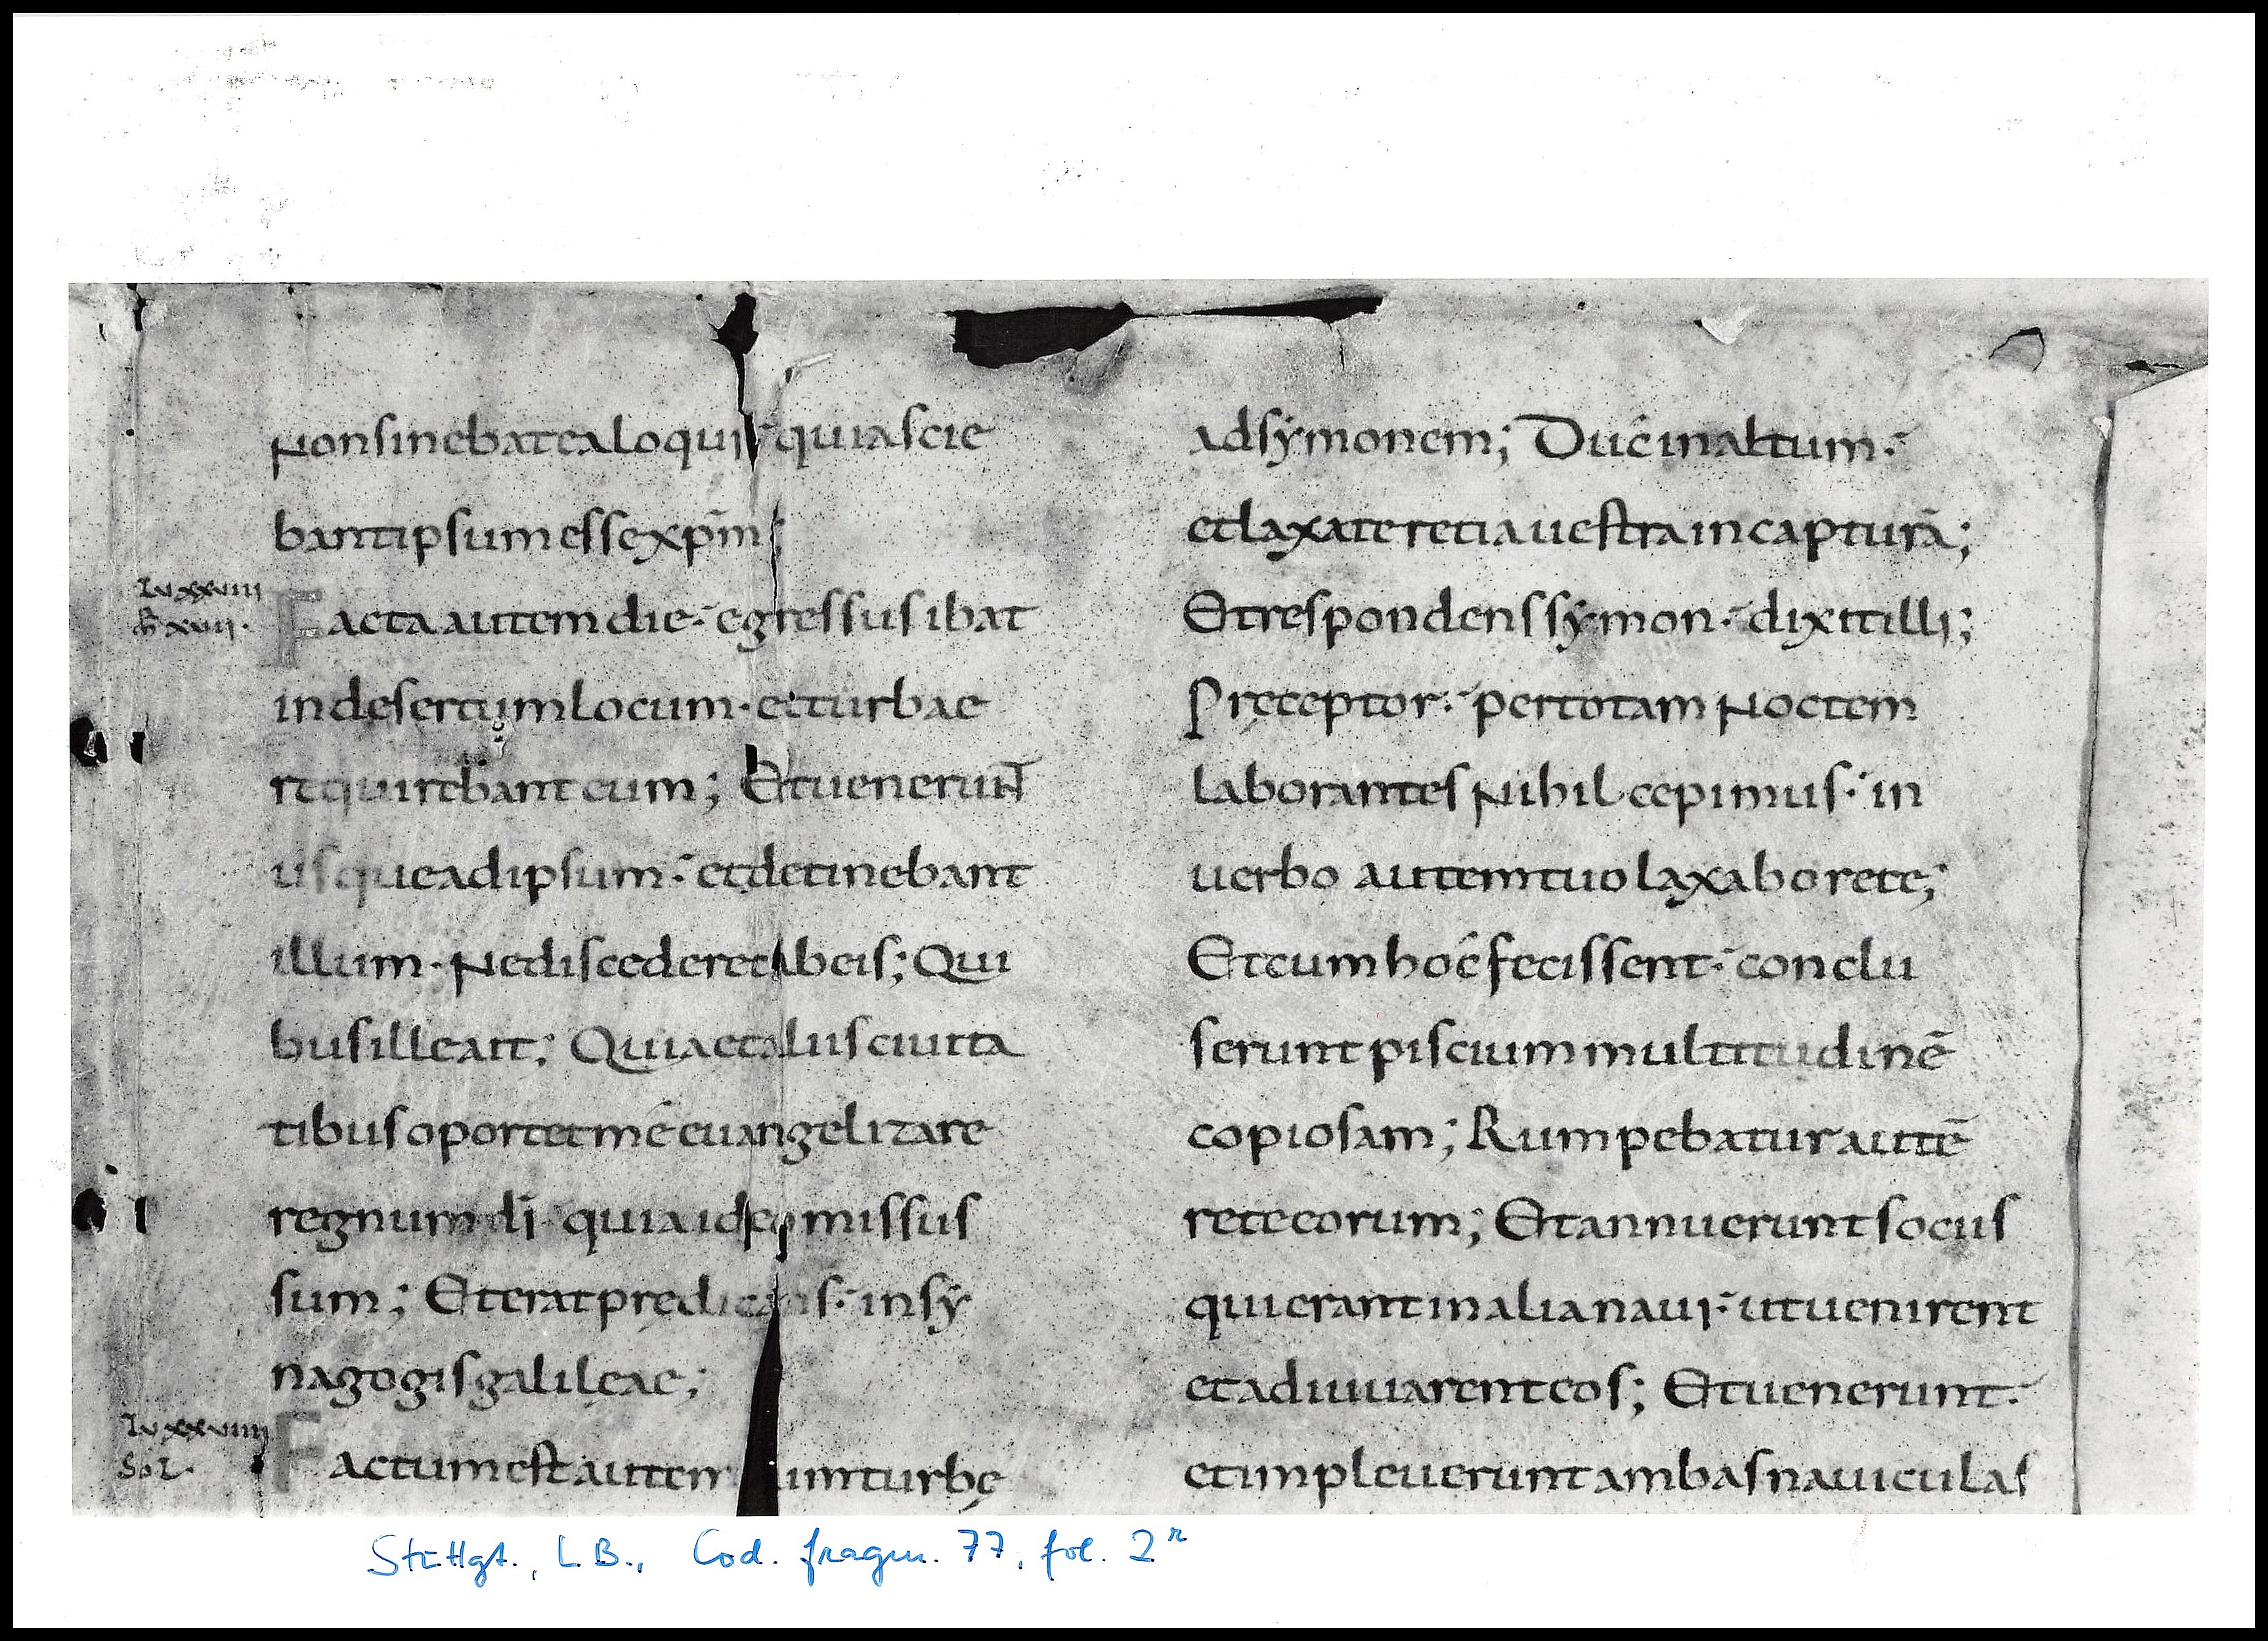 Non sinebat ea loqui quia scie
bant ipsum esse xpm̄;
Lu xxviii
M̄ xvii·
Facta autem die· egressus ibat
in desertum locum· et turbae
requirebant eum; Et uenerunt
usque ad ipsum· et detinebant
illum· Ne discederet ab eis; Qui
bus ille ait; Quia et aliis ciuita
tibus oportet mé euangelizare
regnum dī quia ideo missus
sum; Et erat prędicans· in sẏ
nagogis galilęae;
Lu xxviiii
Sol·
Factum est autem cum turbę
ad sẏmonem; Duć in altum·
et laxate retia uestra in capturā;
Et respondens sẏmon· dixit illi;
Pręceptor· per totam Noctem
laborantes Nihil cepimus· in
uerbo autem tuo laxabo rete;
Et cum hoć fecissent· conclu
serunt piscium multitudinē
copiosam; Rumpebatur autē
rete eorum; Et annuerunt sociis
qui erant in alia naui· ut uenirent
et adiuuarent eos; Et uenerunt·
et impleuerunt ambas nauiculas
Stuttgt., LB., Cod. fragm. 77, fol. 2r